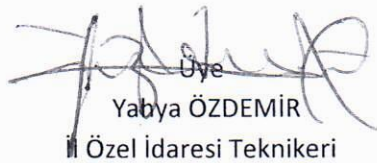 Üye
Yahya ÖZDEMİR
İl Özel İdaresi Teknikeri